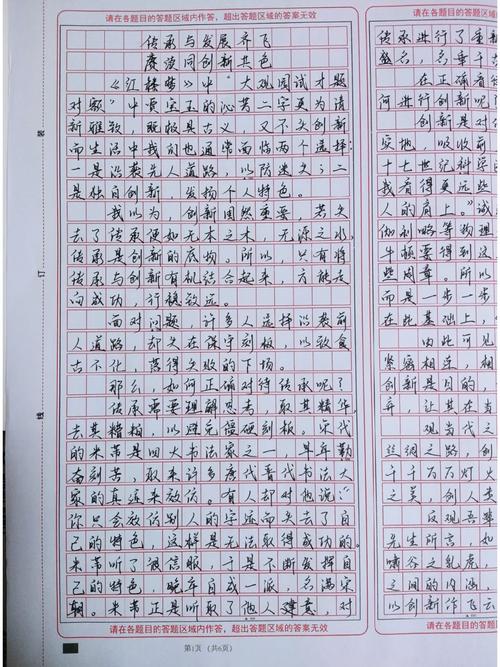 请在各题目的答题区域内作答,超出答题区域的答案无效
请在各题目的答
传承与发展齐飞
赓续同创新共色
《红楼梦》中“大观园试才题
对额”中贾宝玉的沁芳二字更为清
新雅致,既极具古义,又不失创新
而生活中我们也通常面临两个选择:
一是沿袭先人道路,以防迷失;二
是独自创新,发扬个人特色。
我以为,创新固然重要,若失
去了传承便如无本之木,无源之水,
传承是创新的底物。所以,只有将
传承与创新有机结合起来,方能走
向成功,行稳致远。
面对问题,许多人选择沿袭前
人道路,却失在保守刻板,以致食
古不化,落得失败的下场。
那么,如何正确对待传承呢?
传承需要理解思考,取其精华,
去其糟粕,以避免僵硬刻板。宋代
的米芾是四大书法家之一,早年勤
奋刻苦,取来许多唐代晋代书法大
家的真迹来放仿。有人却对他说:“
你只会放仿别人的字迹而失去了自
己的特色,这样是无法取得成功的。
米芾听了很信服,于是不断发挥自
己的特色,晚年自成一派,名满宋
朝。米芾正是听取了他人建意,对
传承进行了重新
盛名,名垂千古
在正确看待
何进行创新呢
创新是对
实地,吸收前
十七世纪科学
我看得更远些
人的肩上。”诚
伽利略等物理
牛顿要得到这
些周章。所以
而是一步一步
在此基础上,
由此可见
紧密相连,相
创新是目的,
弃,让其在当
观当代之
丝绸之路,创
千千万万灯火
之美,创人类
反观吾辈
先生所言,如
啸谷之乳虎,
之间的内涵,
以创新作飞云
装
订
线
请在各题目的答题区域内作答,超出答题区域的答案无效
请在各题目的答
第1页(共6页)